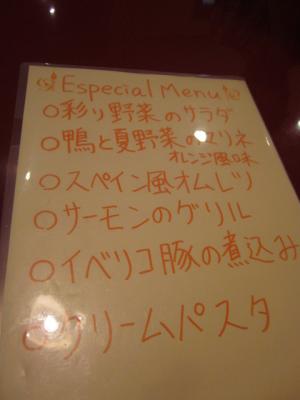 Especial Menu
○彩り野菜のサラダ
○鴨と夏野菜のマリネ
オレンジ風味
○スペイン風オムレツ
○サーモンのグリル
○イベリコ豚の煮込み
○クリームパスタ